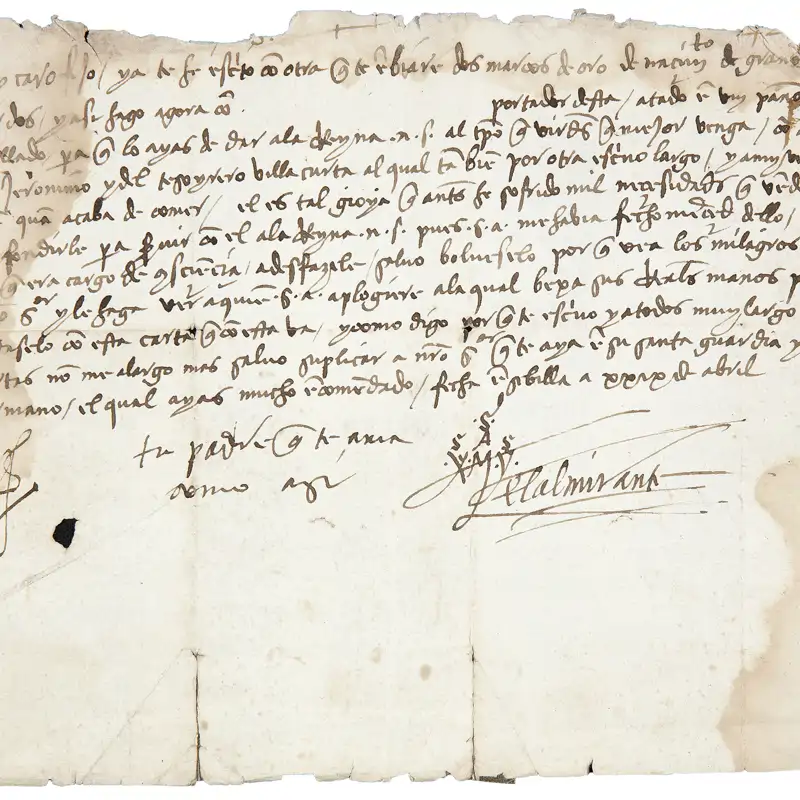 y caro fijo / ya te he escrito cō otra q̃ te ēbiare dos marcos de oro de nacimiº de granos
rdos / y asi hago agora cō portador desta / atado ē un paño
llado pa q̃ lo ayas de dar ala Reyna .n. s. al tp̃o q̃ vierdes q̃ mejor venga / cō
Jeronimo y del tesoyrero villacurta al qual tābien por otra escrivo largo / y
quā acaba de comer / el es tal gioya q̃ antes he sofrido mil necesidades q̃ vēde
fondirle pa servir cō el ala Reyna .n. s. pues .s. a. me habia fecho merced dello /
q̃ era cargo de cōsciencia / a desfazele / salvo bolverselo por q̃ vea los milagros
sºr y le haga ver a quiē .s. a. aploguere ala qual beya sus Reales manos p
taselo cō esta carta q̃ cō esta va / y como digo por q̃ te escrivo y a todos muy largo
rtas nō me alargo mas salvo suplicar a nr̃o sºr q̃ te aya ē su santa guardia y
rmano / el qual ayas mucho ēcomendado / fecha ē sibilla a xxix de abril
tu padre q̃ te ama
como a si
.S.
.S. A .S.
X M Y
El almirante